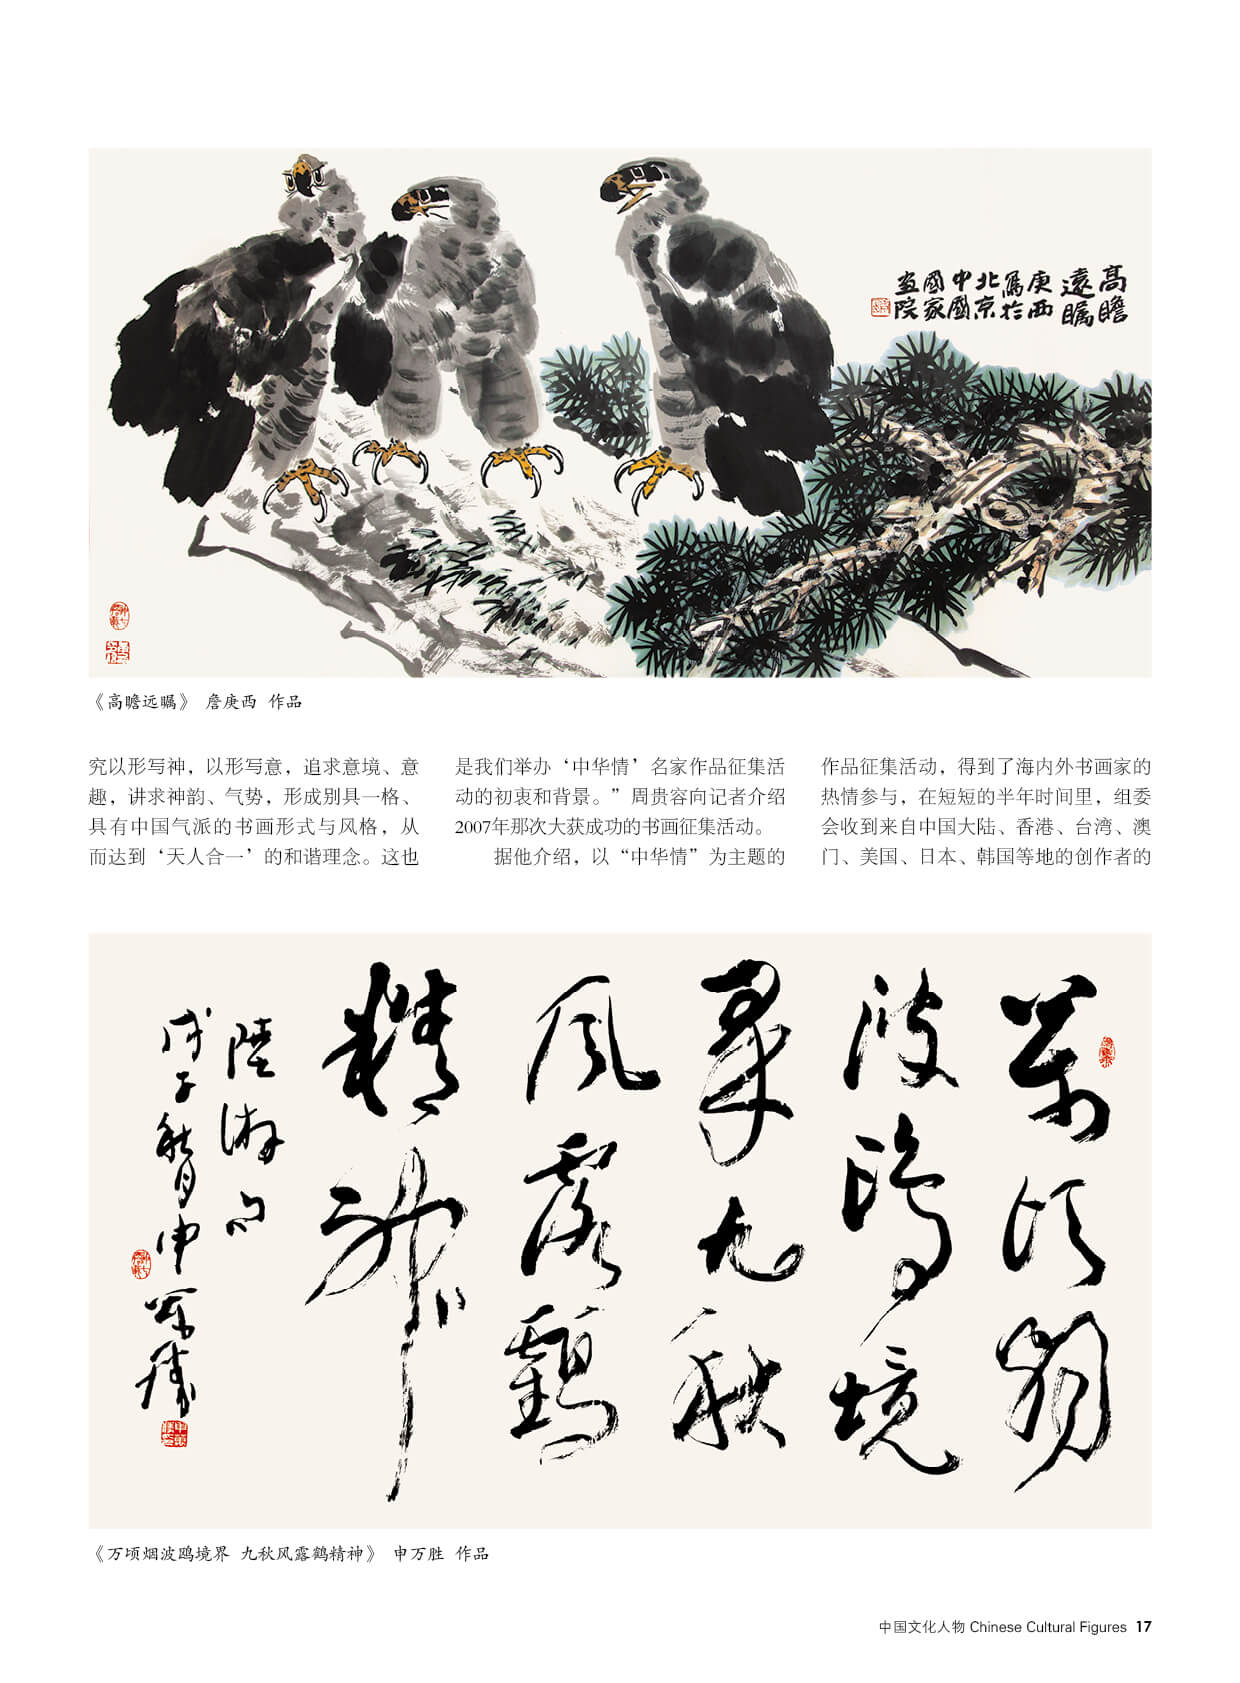 高瞻
遠矚
庚西
寫於
北京
中國
國家
画院
《高瞻远瞩》 詹庚西 作品
究以形写神，以形写意，追求意境、意
趣，讲求神韵、气势，形成别具一格、
具有中国气派的书画形式与风格，从
而达到‘天人合一’的和谐理念。这也
是我们举办‘中华情’名家作品征集活
动的初衷和背景。”周贵容向记者介绍
2007年那次大获成功的书画征集活动。
据他介绍，以“中华情”为主题的
作品征集活动，得到了海内外书画家的
热情参与，在短短的半年时间里，组委
会收到来自中国大陆、香港、台湾、澳
门、美国、日本、韩国等地的创作者的
萬頃烟
波鷗境
界九秋
風露鶴
精神
陸游句
戊子秋月申萬勝
《万顷烟波鸥境界 九秋风露鹤精神》 申万胜 作品
中国文化人物 Chinese Cultural Figures 17